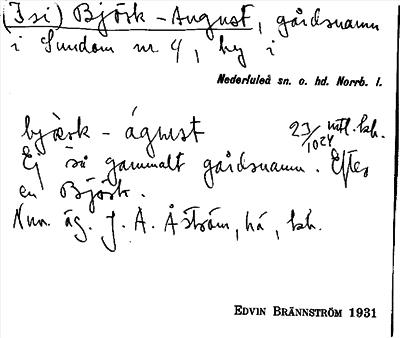 (Isi) Björk-August, gårdsnamn
i Sundom nr 4, by i
Nederluleå sn. o. hd. Norrb. l.
bjœsk - águst 23/10 24 mtl. bh.
Ej så gammalt gårdsnamn. Efter
en Björk.
Nuv. äg. J. A. Åström, há, bh.
EDVIN BRÄNNSTRÖM 1931